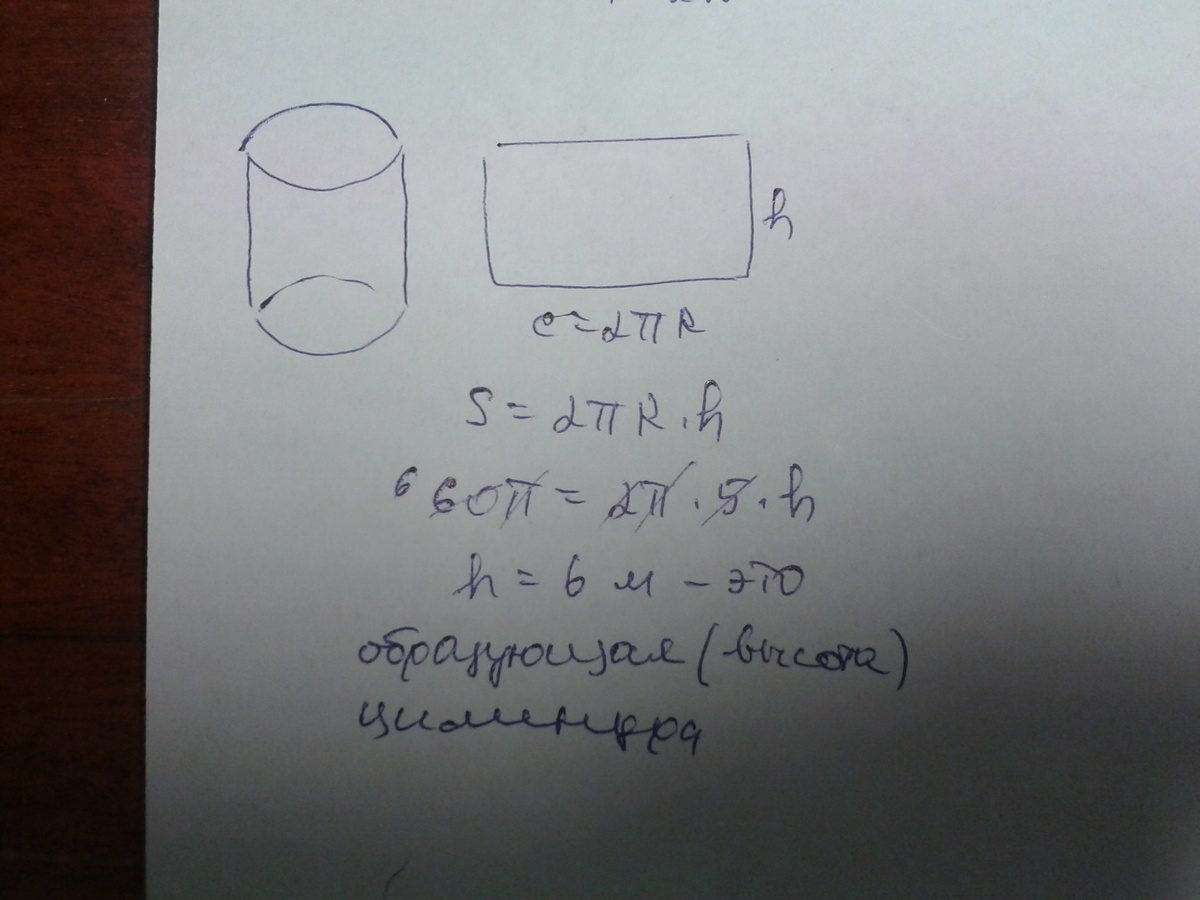 h
c = 2πR
S = 2πR · h
6 60π = 2π · 5 · h
h = 6 м – это
образующая (высота)
цилиндра